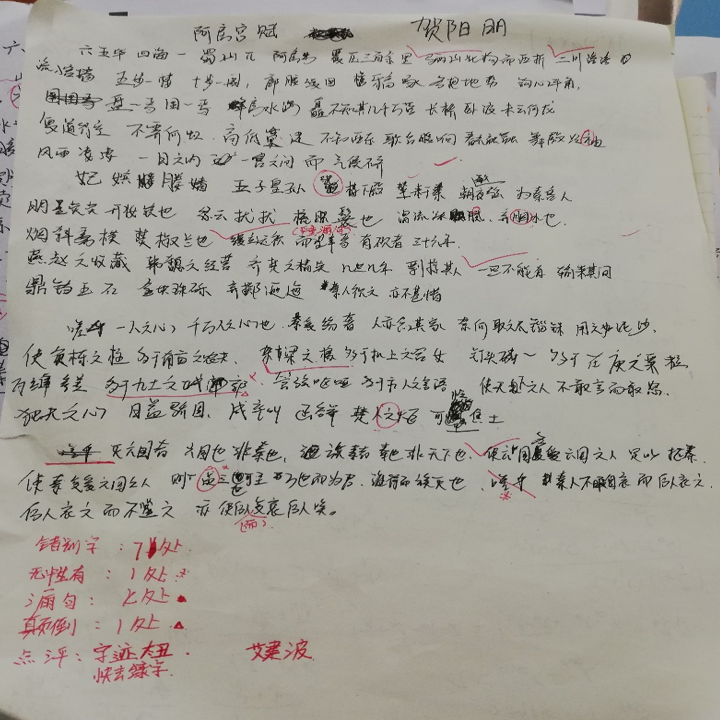 阿房宫赋 贺阳朋
六王毕 四海一 蜀山兀 阿房出 覆压三百余里 骊山北构而西折 二川溶溶
流入宫墙 五步一楼 十步一阁 廊腰缦回 檐牙高啄 各抱地势 钩心斗角
盘 焉 囷 焉 蜂房水涡 矗不知其几千万落 长桥卧波 未云何龙
复道行空 不霁何虹 高低冥迷 不知西东 歌台暖响 春光融融 舞殿冷袖
风雨凄凄 一日之内 一宫之间 而气候不齐
妃嫔媵嫱 王子皇孙 下殿 辇来于秦 为秦宫人
明星荧荧 开妆镜也 绿云扰扰 梳晓鬟也 渭流涨腻 水也
烟斜雾横 焚椒兰也 而望幸焉 有不见者 三十六年
燕赵之收藏 韩魏之经营 齐楚之精英 几世几年 剽掠其人 一旦不能有 输来其间
鼎铛玉石 金块珠砾 弃掷逦迤 秦人视之 亦不甚惜
嗟乎 一人之心 千万人之心也 秦爱纷奢 人亦念其家 奈何取之尽锱铢 用之如泥沙
使负栋之柱 多于南亩之农夫 架梁之椽 多于机上之工女 钉头磷磷 多于在庾之粟粒
瓦缝参差 多于九土之城郭 管弦呕哑 多于市人之言语 使天下之人 不敢言而敢怒
独夫之心 日益骄固 戍卒叫 函谷举 楚人一炬 可怜焦土
灭六国者 六国也 非秦也 族秦者 秦也 非天下也 使六国各爱六国之人 足以拒秦
使秦复爱六国之人 则 三世 可至万世而为君 谁得而族灭也 秦人不暇自哀 而后人哀之
后人哀之 而不鉴之 亦使后人复哀后人矣。
错别字：7处
无中生有：1处
漏句：七处
颠倒：1处
点评：字迹太丑. 艾建波
快去练字